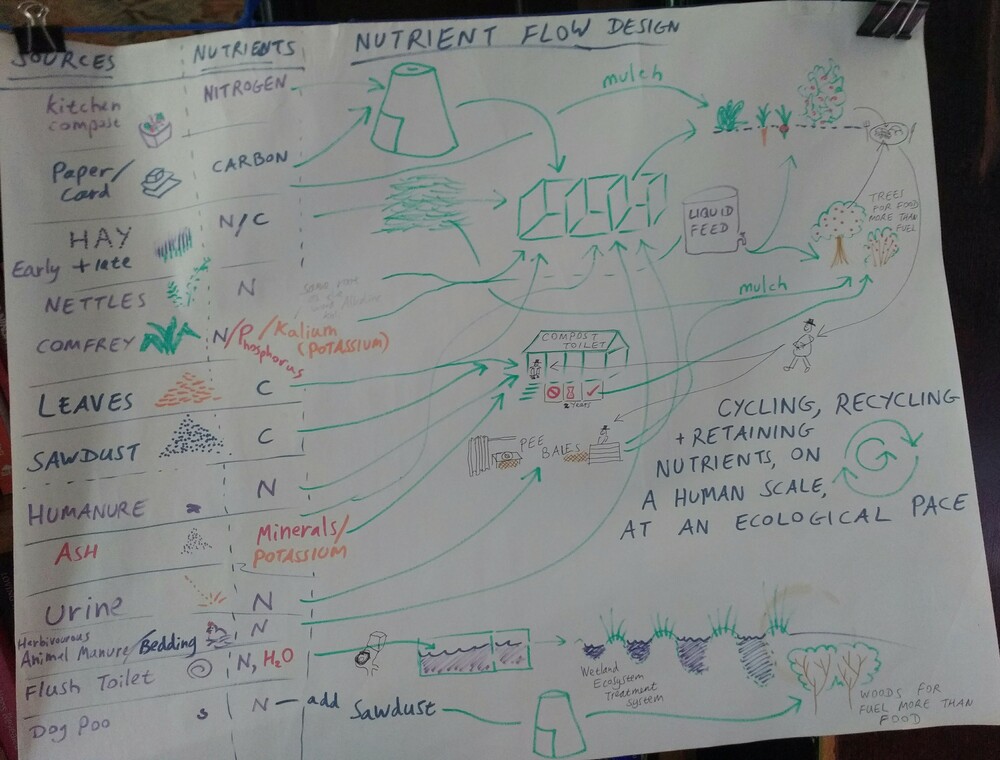 NUTRIENT FLOW DESIGN
SOURCES
NUTRIENTS
Kitchen
compost
NITROGEN
Paper/
Card
CARBON
HAY
Early + late
N/C
NETTLES
N
COMFREY
N/P/Kalium
Phosphorus
(POTASSIUM)
LEAVES
C
SAWDUST
C
HUMANURE
N
ASH
Minerals/
POTASSIUM
Urine
N
Herbivourous
Animal Manure/Bedding
N
Flush Toilet
N, H2O
Dog Poo
N — add Sawdust
mulch
LIQUID
FEED
TREES
FOR FOOD
MORE THAN
FUEL
mulch
COMPOST
TOILET
2 YEARS
PEE
BALES
CYCLING, RECYCLING
+ RETAINING
NUTRIENTS, ON
A HUMAN SCALE,
AT AN ECOLOGICAL PACE
Wetland
Ecosystem
Treatment
System
WOODS FOR
FUEL MORE THAN
FOOD